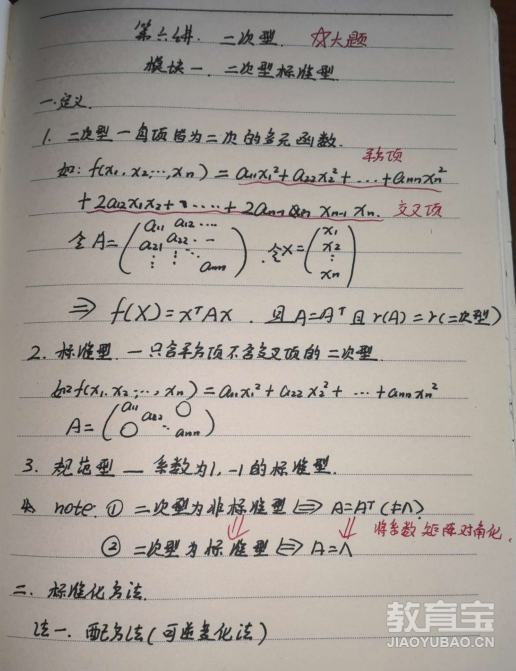 第六讲. 二次型. ☆大题
模块一. 二次型标准型
一.定义.
1. 二次型—每项皆为二次的多元函数.
平方项
如: f(x1, x2, …, xn) = a11x1² + a22x2² + … + annxn²
+ 2a12x1x2 + …… + 2an-1 xn-1 xn. 交叉项
令A = (a11 a12 … a21 a22 … ⋮ ⋮ ⋱ ann) 令X = (x1 x2 ⋮ xn)
⇒ f(X) = xᵀAx. 且A=Aᵀ且r(A)=r(二次型)
2. 标准型 — 只含平方项不含交叉项的二次型.
如f(x1, x2, …, xn) = a11x1² + a22x2² + … + annxn²
A = (a11 a22 ⋱ ann)
3. 规范型 — 系数为1, -1的标准型.
note. ① 二次型为非标准型 ⇔ A=Aᵀ (≠Λ)
⇓ ⇓ 将系数矩阵对角化.
② 二次型为标准型 ⇔ A=Λ
二. 标准化方法.
法一. 配方法(可逆变化法)
教育宝
JIAOYUBAO.CN